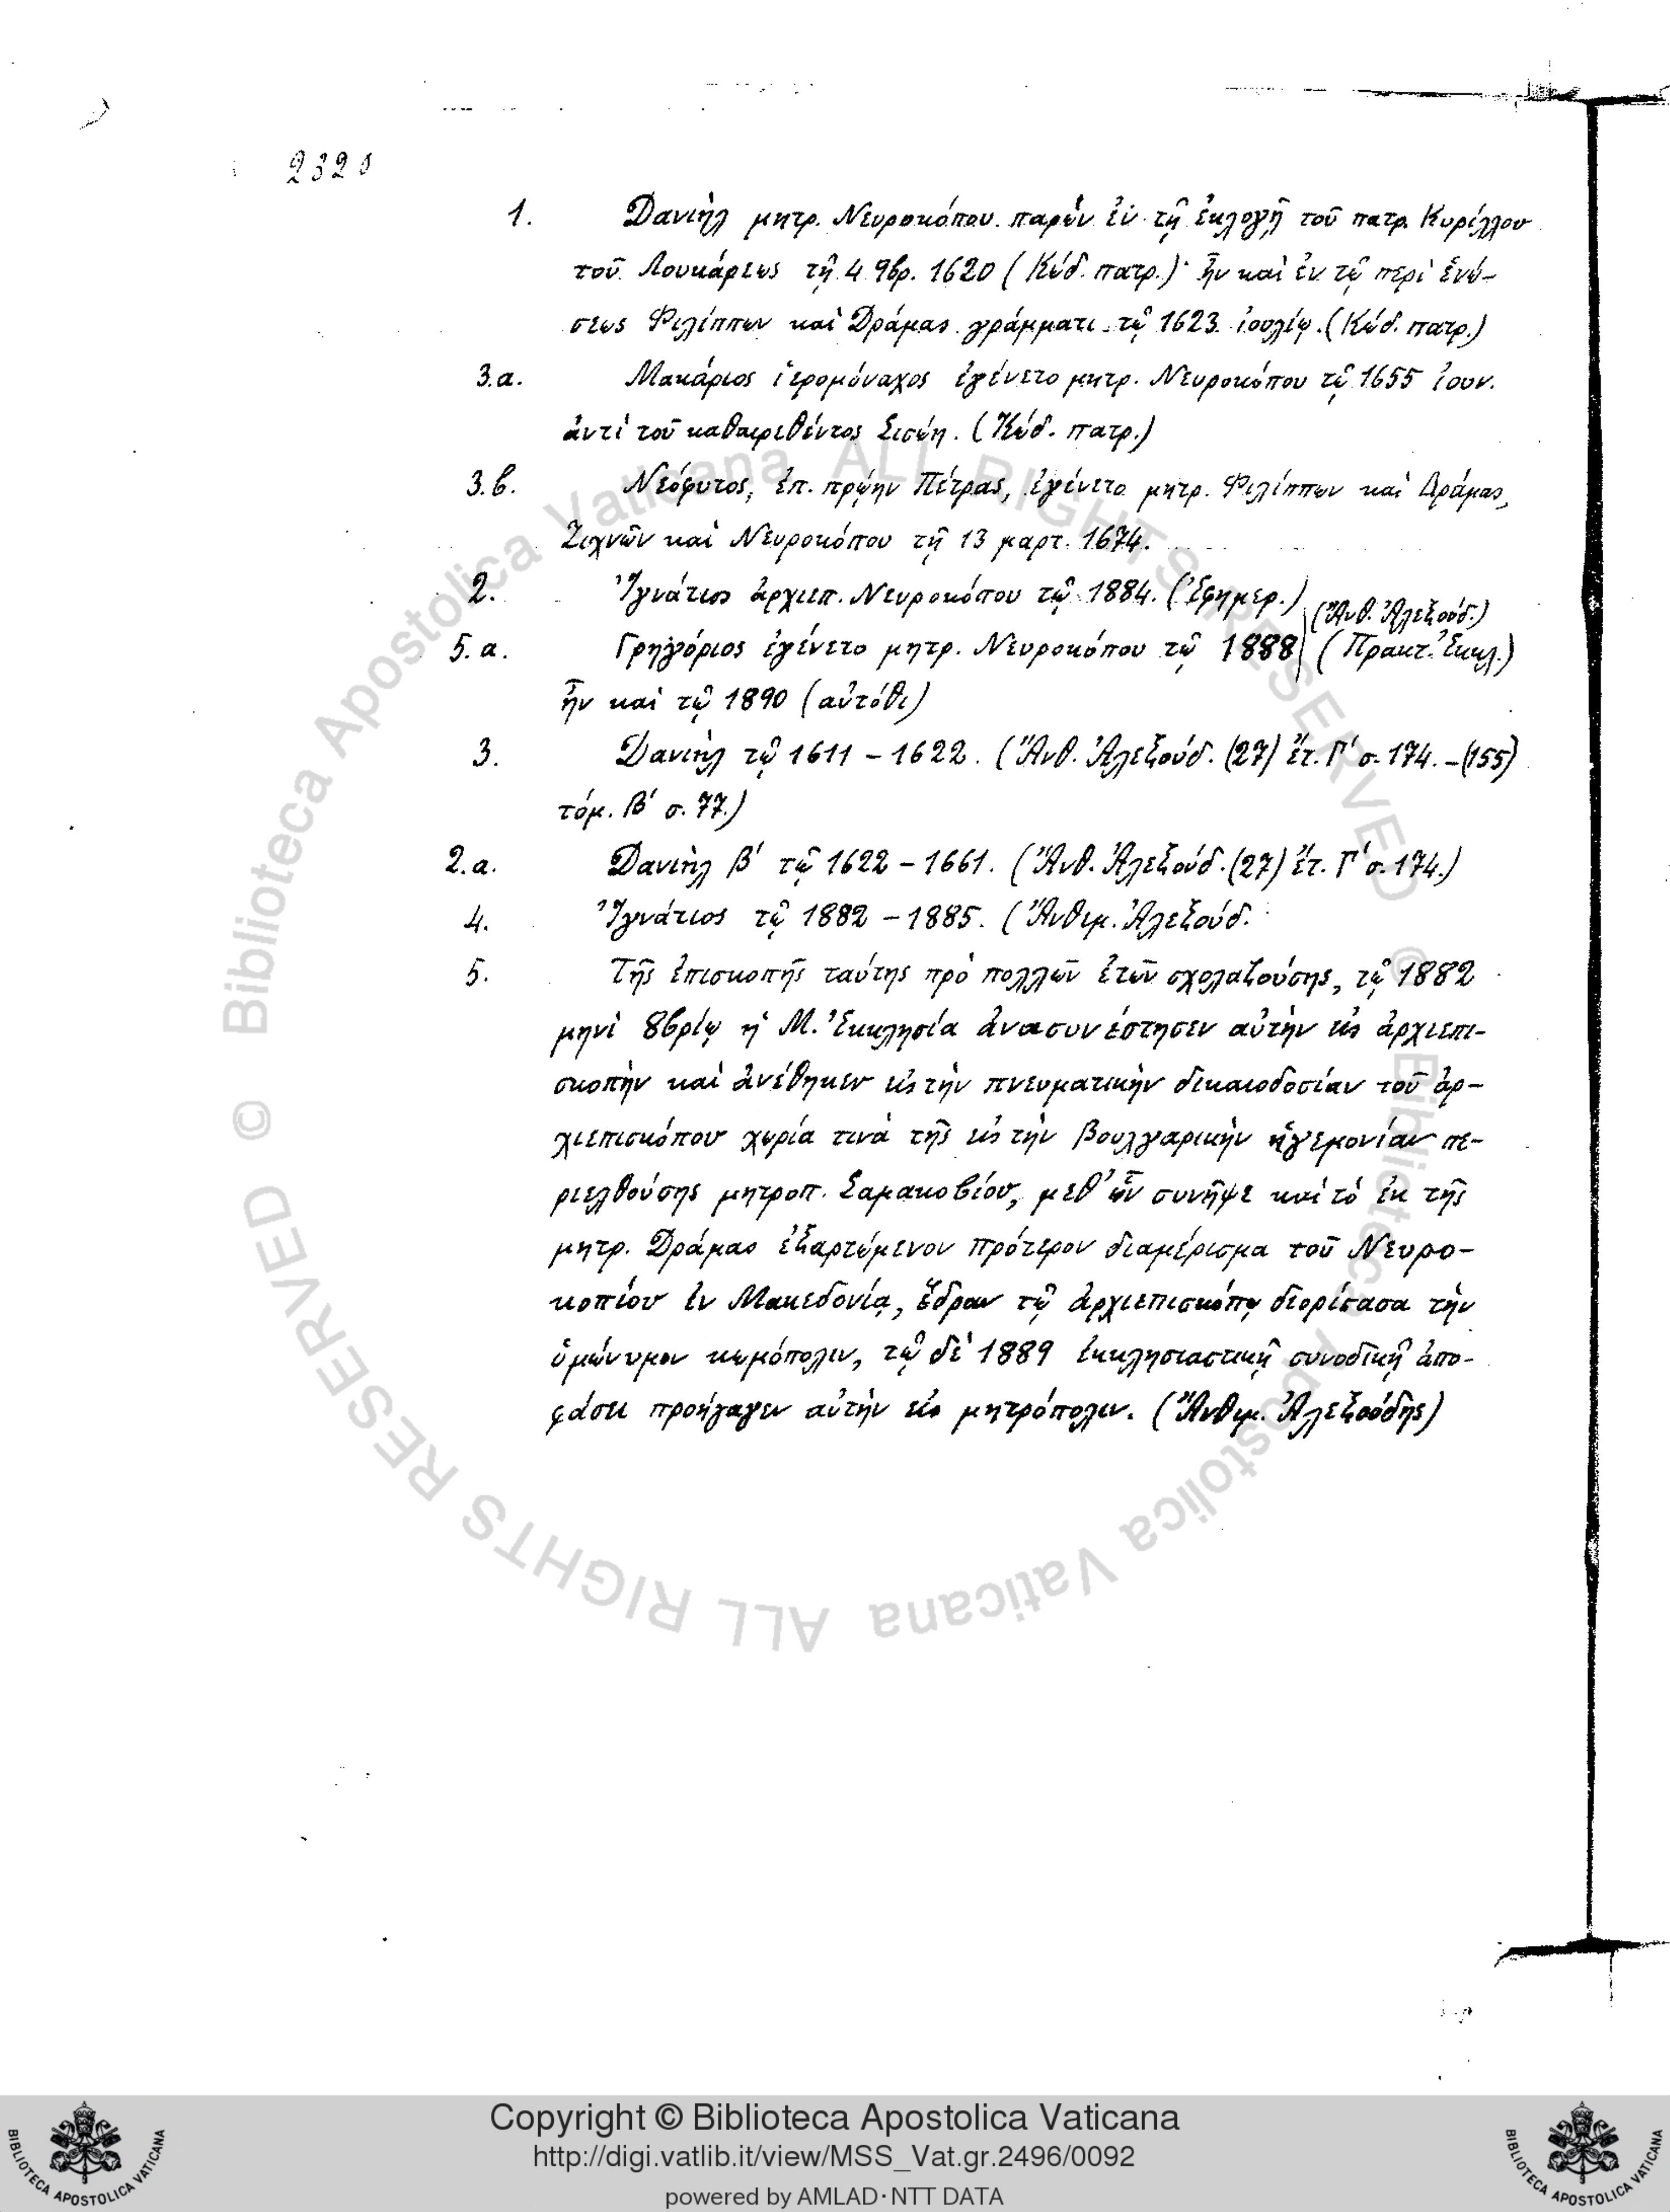 232
1. Δανιὴλ μητρ. Νευροκόπου παρὼν ἐν τῇ ἐκλογῇ τοῦ πατρ. Κυρίλλου
τοῦ Λουκάρεως τῇ 4 9βρ. 1620 (Κώδ. πατρ.)· ἦν καὶ ἐν τῷ περὶ ἑνώ-
σεως Φιλίππων καὶ Δράμας γράμματι τῷ 1623 ἰουλίῳ. (Κώδ. πατρ.)
3.α. Μακάριος ἱερομόναχος ἐγένετο μητρ. Νευροκόπου τῷ 1655 ἰουν.
ἀντὶ τοῦ καθαιρεθέντος Σισώη. (Κώδ. πατρ.)
3.β. Νεόφυτος, ἐπ. πρῴην Πέτρας, ἐγένετο μητρ. Φιλίππων καὶ Δράμας,
Ζιχνῶν καὶ Νευροκόπου τῇ 13 μαρτ. 1674.
2. Ἰγνάτιος ἀρχιεπ. Νευροκόπου τῷ 1884. (Ἐφημερ.) (Ἄνθ. Ἀλεξούδ.)
5.α. Γρηγόριος ἐγένετο μητρ. Νευροκόπου τῷ 1888 (Πρακτ. Ἐκκλ.)
ἦν καὶ τῷ 1890 (αὐτόθι)
3. Δανιὴλ τῷ 1611 – 1622. (Ἄνθ. Ἀλεξούδ. (27) ἔτ. Γ' σ. 174. – (155)
τόμ. Β' σ. 77.)
2.α. Δανιὴλ β' τῷ 1622 – 1661. (Ἄνθ. Ἀλεξούδ. (27) ἔτ. Γ' σ. 174.)
4. Ἰγνάτιος τῷ 1882 – 1885. (Ἄνθιμ. Ἀλεξούδ.
5. Τῆς ἐπισκοπῆς ταύτης πρὸ πολλῶν ἐτῶν σχολαζούσης, τῷ 1882
μηνὶ 8βρίῳ ἡ Μ. Ἐκκλησία ἀνασυνέστησεν αὐτὴν εἰς ἀρχιεπι-
σκοπὴν καὶ ἀνέθηκεν εἰς τὴν πνευματικὴν δικαιοδοσίαν τοῦ ἀρ-
χιεπισκόπου χωρία τινὰ τῆς εἰς τὴν βουλγαρικὴν ἡγεμονίαν πε-
ριελθούσης μητροπ. Σαμακοβίου, μεθ' ὧν συνῆψε καὶ τὸ ἐκ τῆς
μητρ. Δράμας ἐξαρτώμενον πρότερον διαμέρισμα τοῦ Νευρο-
κοπίου ἐν Μακεδονίᾳ, ἕδραν τῷ ἀρχιεπισκόπῳ διορίσασα τὴν
ὁμώνυμον κωμόπολιν, τῷ δὲ 1889 ἐκκλησιαστικῇ συνοδικῇ ἀπο-
φάσει προήγαγεν αὐτὴν εἰς μητρόπολιν. (Ἄνθιμ. Ἀλεξούδης)
© Biblioteca Apostolica Vaticana ALL RIGHTS RESERVED
© Biblioteca Apostolica Vaticana ALL RIGHTS RESERVED
Copyright © Biblioteca Apostolica Vaticana
http://digi.vatlib.it/view/MSS_Vat.gr.2496/0092
powered by AMLAD·NTT DATA
BIBLIOTECA APOSTOLICA VATICANA
BIBLIOTECA APOSTOLICA VATICANA